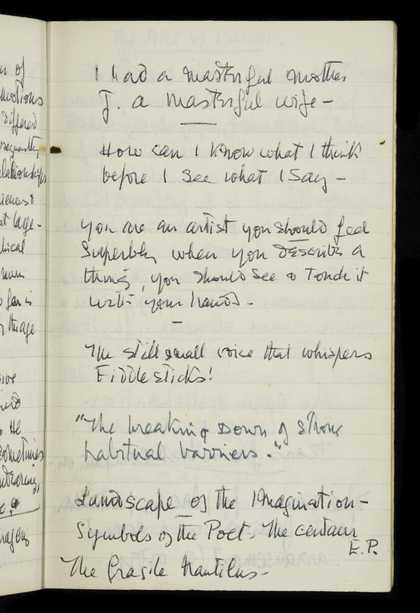 I had a masterful mother
J. a masterful wife –
How can I know what I think
before I see what I say –
you are an artist you should feel
superbly when you describe a
thing, you should see & touch it
with your hands –
The still small voice that whispers
Fiddlesticks!
"The breaking down of strong
habitual barriers."
Landscape of the Imagination –
Symbols of the Poet. The centaur
E.P.
The fragile Nautilus –